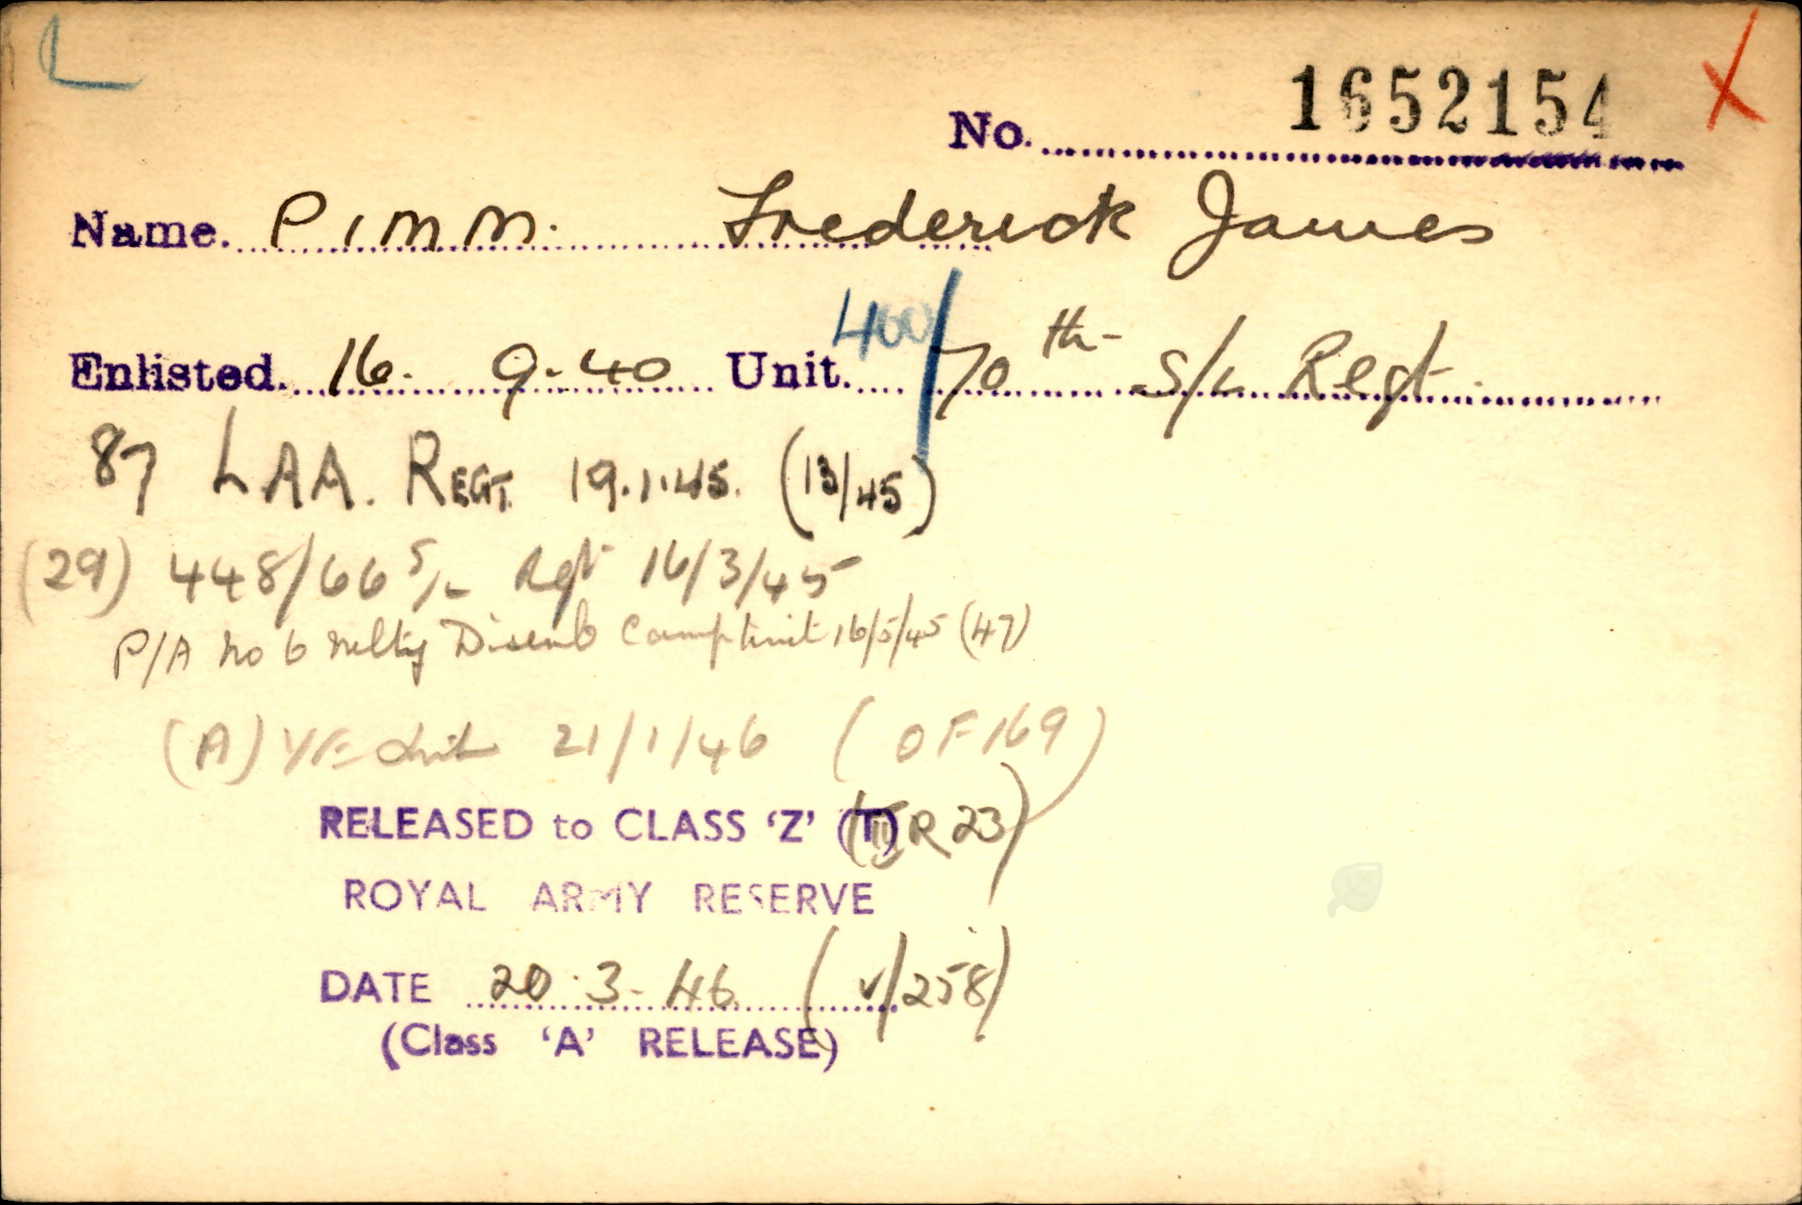 L
No. 1652154 X
Name. PIMM. Frederick James
Enlisted. 16. 9.40 Unit. 460/70th S/L Regt.
87 LAA. REGT. 19.1.45. (13/45)
(29) 448/66 S/L Rgt 16/3/45
P/A No 6 Disemb Camp Unit 16/5/45 (47)
(A) Unit 21/1/46 (OF 169)
RELEASED to CLASS 'Z' (T) R 23)
ROYAL ARMY RESERVE
DATE 20.3.46 (V/258)
(Class 'A' RELEASE)